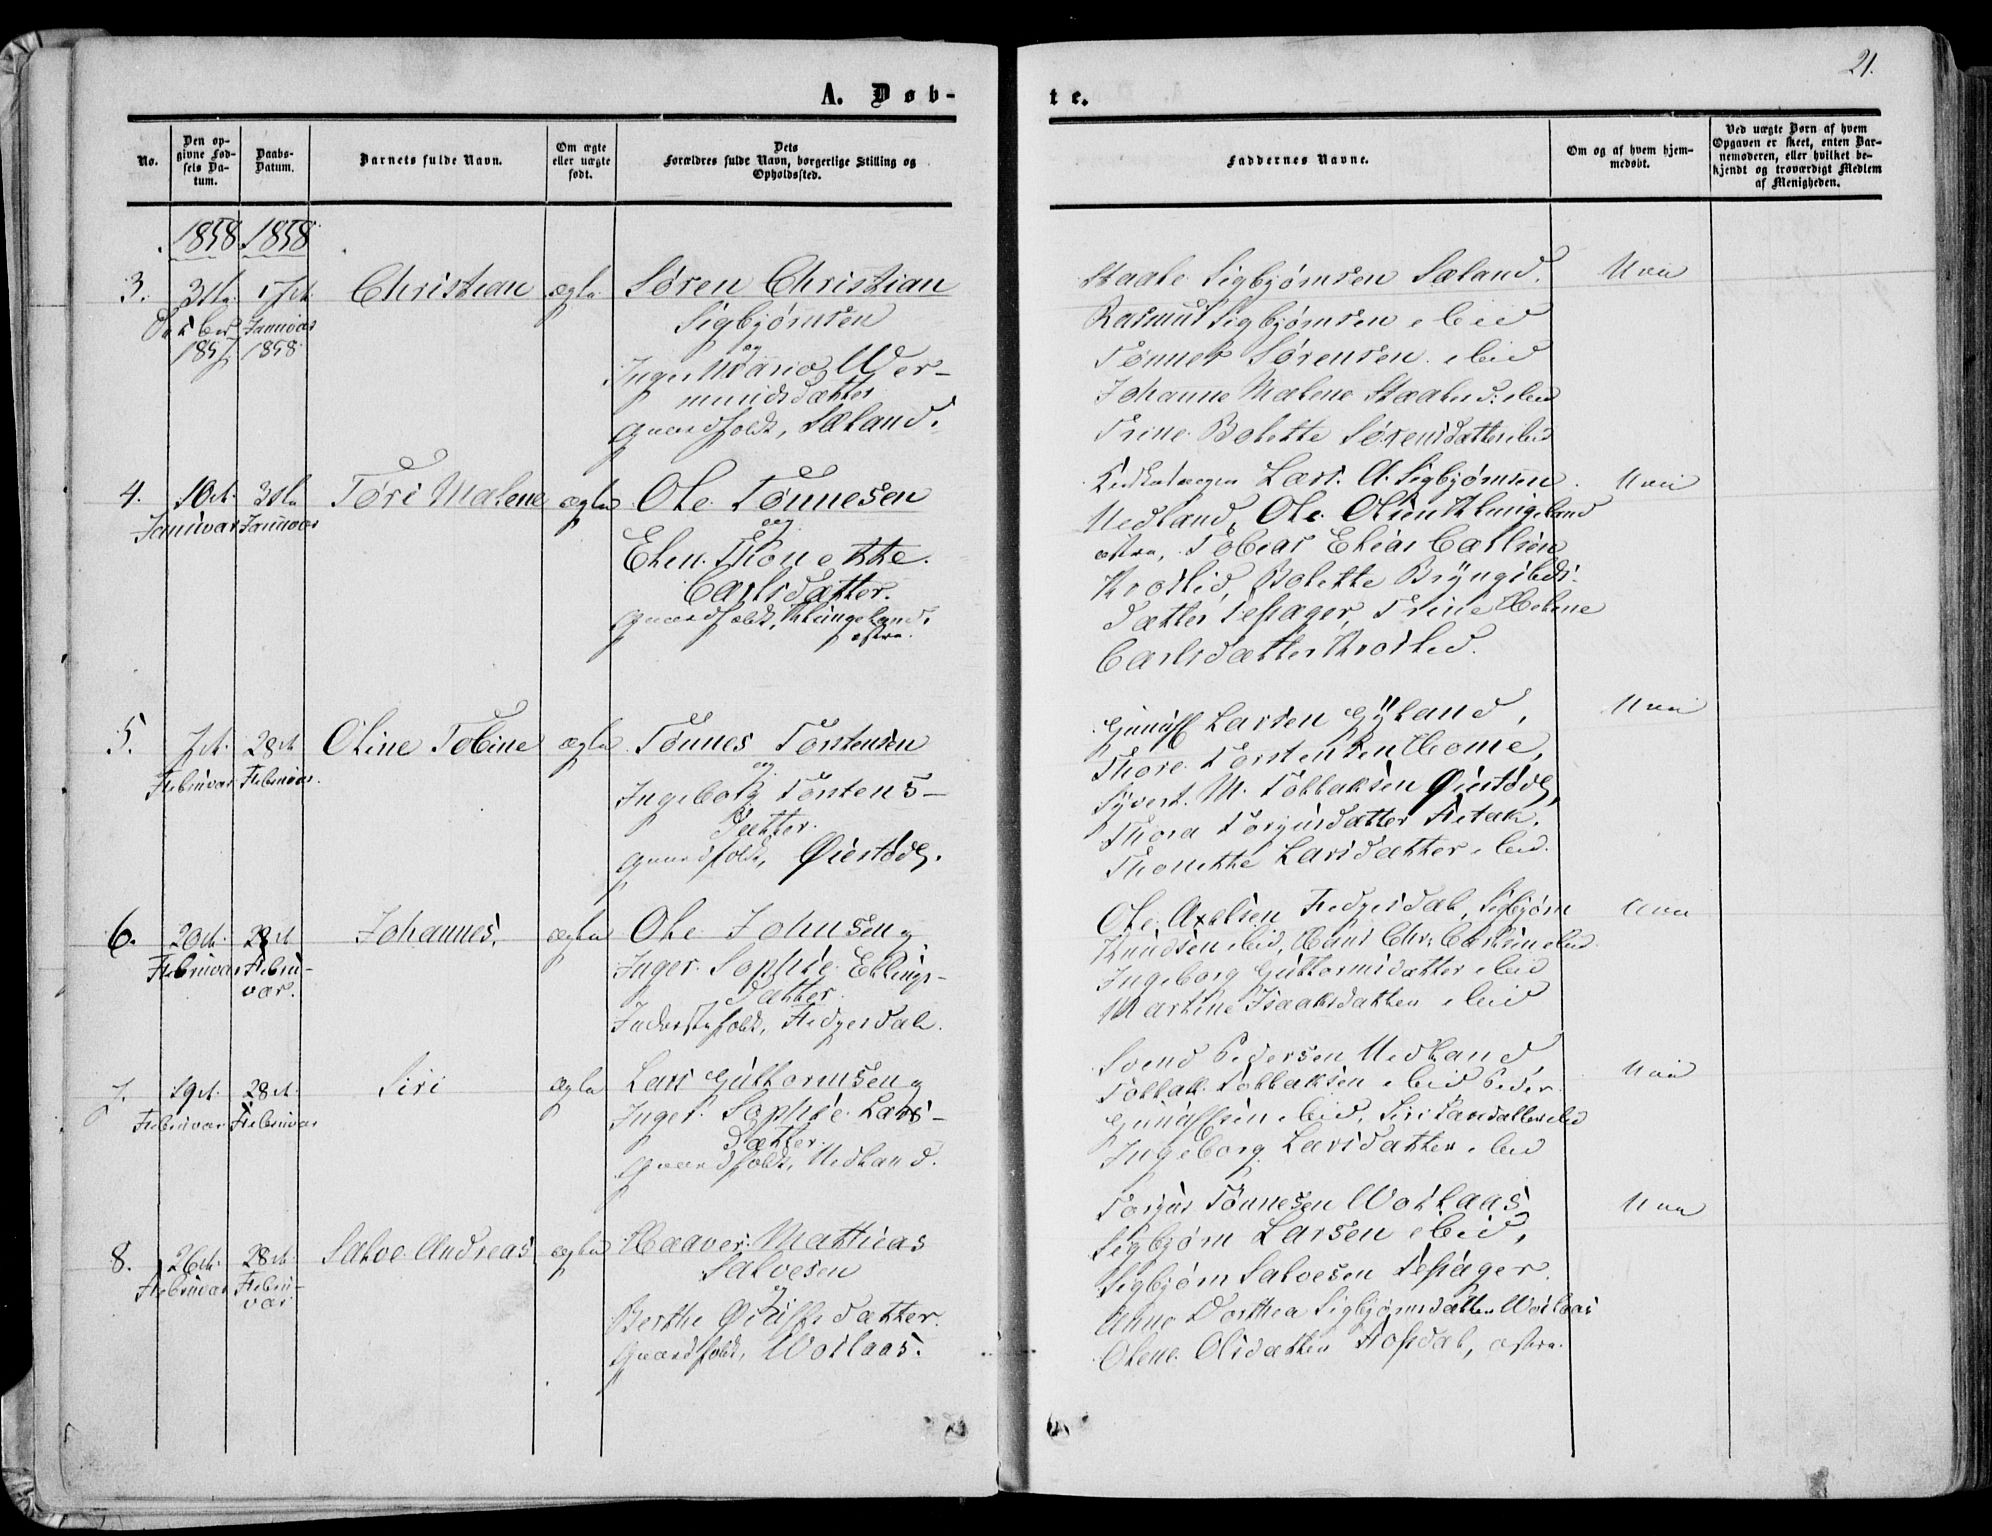 21.
A. Døb-
te.
No.
Den op-
givne Fød-
sels Da-
tum.
Daabs-
Datum.
Barnets fulde Navn.
Om ægte
eller uægte
født.
Dets
Forældres fulde Navn, borgerlige Stilling og
Opholdssted.
Faddernes Navne.
Om og af hvem hjem-
medøbt.
Ved uægte Børn af hvem
Opgaven er skeet, enten Bar-
nemoderen, eller hvilket be-
kjendt og troværdigt Medlem
af Menigheden.
1858 1858
3.
Januar
1857 1858
Christian
ægte
Søren Christian
Sigbjørnsen
og
Inger Maria Wer-
mundsdatter
Gaardfolk, Sæland.
Staale Sigbjørnsen Sæland.
Rasmus Sigbjørnsen ibid
Tønnes Sørensen ibid
Johanne Malene Staalesd. ibid
Trine Bolette Sørensdatter ibid
Nei
4.
10de
Januar
Januar
Tøri Malene
ægte
Ole Tønnesen
og
Elen Thonette
Carlsdatter.
Gaardfolk, Klungeland,
østre.
Lars A. Sigbjørnsen
Nedland, Ole Olsen Klungeland
østre, Tobias Elias Carlsen
Kroslid, Bolette
datter Tessager, Trine Helene
Carlsdatter Kroslid.
Nei
5.
7de
Februar
28de
Februar.
Oline Tobine
ægte
Tønnes Torstensen
og
Ingeborg Torstens-
datter.
Gaardfolk, Øiestøel.
Larsen Gyland,
Thore Torstensen Home,
Syvert M. Tollaksen Øiestøel,
Thora Torjusdatter Fletak.
Thonette Larsdatter ibid.
Nei
6.
20de
Februar
28de
Febru-
var.
Johannes.
ægte
Ole Johnsen og
Inger Sophie Ellings-
datter.
Inderstfolk, Fedgesdal.
Ole Axelsen Fedgesdal, Sigbjørn
Knudsen ibid, Hans Chr. Carlsen ibid.
Ingeborg Guttormsdatter ibid
Martine Isaaksdatter ibid
Nei
7.
19de
Februar
28de
Februar
Siri
ægte
Lars Guttormsen og
Inger Sophie Lars-
datter.
Gaardfolk, Nedland.
Svend Pedersen Nedland,
Tollak Tollaksen ibid Peder
Gundersen ibid, Siri ibid
Ingeborg Larsdatter ibid
Nei
8.
26de
Februar
28de
Febru-
var
Salve Andreas
ægte
Haaver Mathias
Salvesen
og
Berthe datter.
Gaardfolk, Woilaas.
Torjus Tønnesen Woilaas
Sigbjørn Larsen ibid,
Sigbjørn Salvesen Tessager.
Anne Dorthea Sigbjørnsdatter Woilaas
Olene Olsdatter østre.
Nei